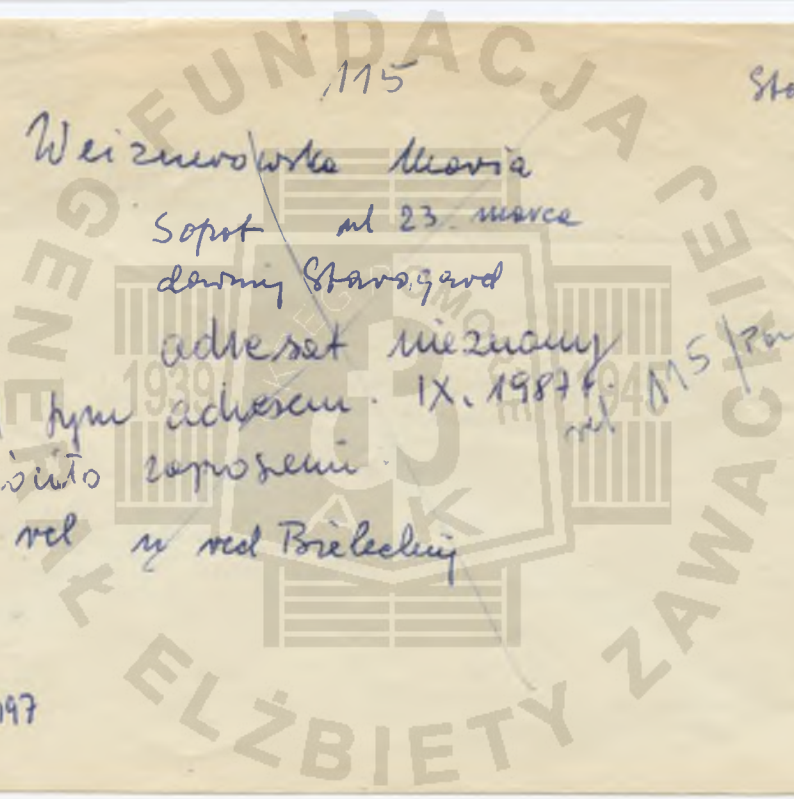 115
Sta
Weiznerowska Maria
Sopot ul 23 marca
dawny Starogard
adresat nieznany
tym adresem. IX. 1987 r.
rel 115/Pom
óciło zaproszenie
rel red Bieleckiej
197
FUNDACJA JENERAŁ ELŻBIETY ZAWACKIEJ
1939 1945
AK